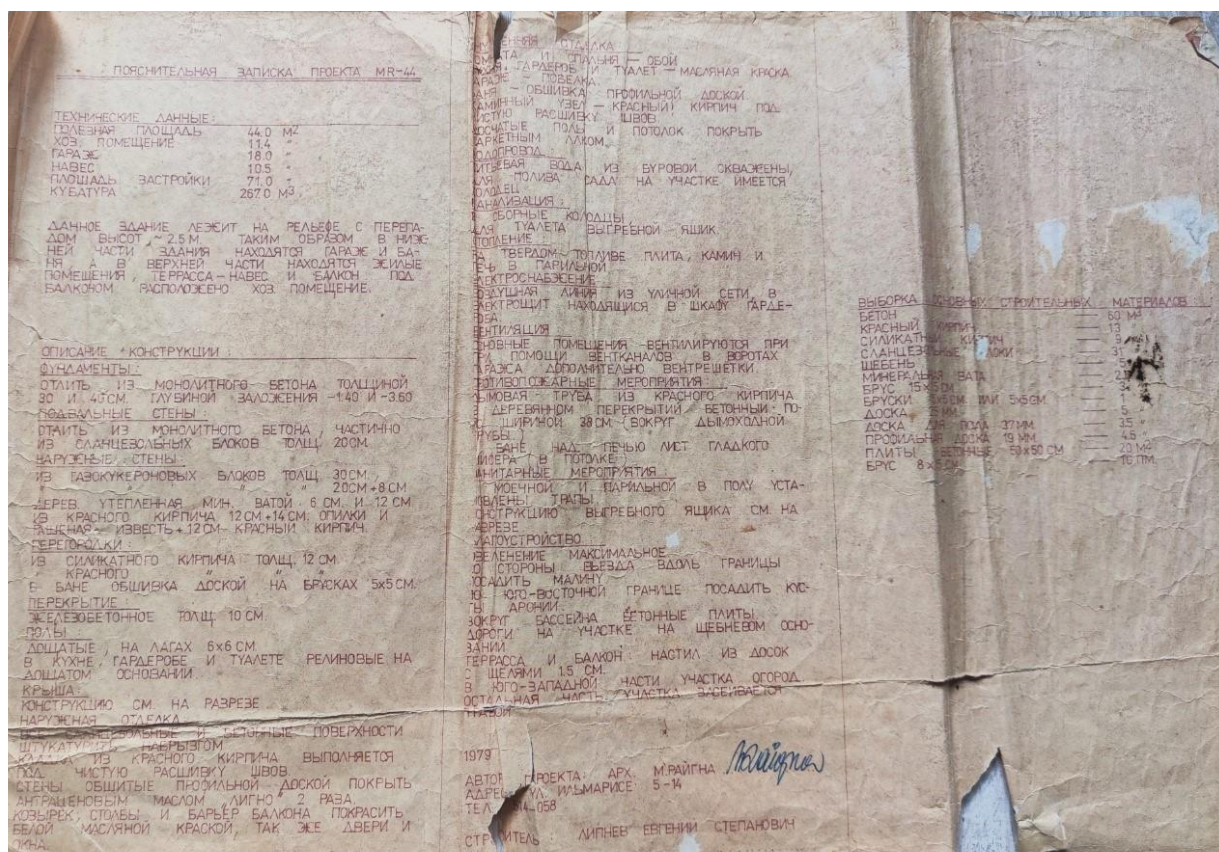 ПОЯСНИТЕЛЬНАЯ ЗАПИСКА ПРОЕКТА MR-44
ТЕХНИЧЕСКИЕ ДАННЫЕ:
ПОЛЕЗНАЯ ПЛОЩАДЬ 44.0 М2
ХОЗ. ПОМЕЩЕНИЕ 11.4 "
ГАРАЖ 18.0 "
НАВЕС 10.5 "
ПЛОЩАДЬ ЗАСТРОЙКИ 71.0 "
КУБАТУРА 267.0 М3
ДАННОЕ ЗДАНИЕ ЛЕЖИТ НА РЕЛЬЕФЕ С ПЕРЕПА-
ДОМ ВЫСОТ ~ 2.5 М. ТАКИМ ОБРАЗОМ В НИЖ-
НЕЙ ЧАСТИ ЗДАНИЯ НАХОДЯТСЯ ГАРАЖ И БА-
НЯ, А В ВЕРХНЕЙ ЧАСТИ НАХОДЯТСЯ ЖИЛЫЕ
ПОМЕЩЕНИЯ, ТЕРРАССА-НАВЕС И БАЛКОН ПОД
БАЛКОНОМ РАСПОЛОЖЕНО ХОЗ. ПОМЕЩЕНИЕ.
ОПИСАНИЕ КОНСТРУКЦИИ:
ФУНДАМЕНТЫ:
ОТЛИТЬ ИЗ МОНОЛИТНОГО БЕТОНА ТОЛЩИНОЙ
30 И 40 СМ. ГЛУБИНОЙ ЗАЛОЖЕНИЯ -1.40 И -3.60
ПОДВАЛЬНЫЕ СТЕНЫ:
ОТЛИТЬ ИЗ МОНОЛИТНОГО БЕТОНА ЧАСТИЧНО
ИЗ СЛАНЦЕЗОЛЬНЫХ БЛОКОВ ТОЛЩ. 20СМ.
НАРУЖНЫЕ СТЕНЫ:
ИЗ ГАЗОКУКЕРОНОВЫХ БЛОКОВ ТОЛЩ. 30СМ.
" " " 20СМ+8СМ
ДЕРЕВ. УТЕПЛЕННАЯ МИН. ВАТОЙ 6 СМ. И 12 СМ
ИЗ КРАСНОГО КИРПИЧА 12 СМ+14 СМ. ОПИЛКИ И
ГАШЕНАЯ ИЗВЕСТЬ+12СМ КРАСНЫЙ КИРПИЧ.
ПЕРЕГОРОДКИ:
ИЗ СИЛИКАТНОГО КИРПИЧА ТОЛЩ. 12 СМ.
" КРАСНОГО " "
В БАНЕ ОБШИВКА ДОСКОЙ НА БРУСКАХ 5х5СМ.
ПЕРЕКРЫТИЕ
ЖЕЛЕЗОБЕТОННОЕ ТОЛЩ. 10 СМ.
ПОЛЫ
ДОЩАТЫЕ, НА ЛАГАХ 6х6 СМ.
В КУХНЕ, ГАРДЕРОБЕ И ТУАЛЕТЕ РЕЛИНОВЫЕ НА
ДОЩАТОМ ОСНОВАНИИ.
КРЫША:
КОНСТРУКЦИЮ СМ. НА РАЗРЕЗЕ
НАРУЖНАЯ ОТДЕЛКА
И БЕТОННЫЕ ПОВЕРХНОСТИ
ШТУКАТУРИТЬ НАБРЫЗГОМ
ИЗ КРАСНОГО КИРПИЧА ВЫПОЛНЯЕТСЯ
ПОД ЧИСТУЮ РАСШИВКУ ШВОВ.
СТЕНЫ ОБШИТЫЕ ПРОФИЛЬНОЙ ДОСКОЙ ПОКРЫТЬ
АНТРАЦЕНОВЫМ МАСЛОМ "ЛИГНО" 2 РАЗА
КОЗЫРЕК, СТОЛБЫ И БАРЬЕР БАЛКОНА ПОКРАСИТЬ
БЕЛОЙ МАСЛЯНОЙ КРАСКОЙ, ТАК ЖЕ ДВЕРИ И
ОКНА.
ОТДЕЛКА
И СПАЛЬНЯ - ОБОИ
ГАРДЕРОБ И ТУАЛЕТ - МАСЛЯНАЯ КРАСКА
- ПОБЕЛКА.
- ОБШИВКА ПРОФИЛЬНОЙ ДОСКОЙ
КАМИННЫЙ УЗЕЛ - КРАСНЫЙ КИРПИЧ ПОД
ЧИСТУЮ РАСШИВКУ ШВОВ
ДОСЧАТЫЕ ПОЛЫ И ПОТОЛОК ПОКРЫТЬ
ПАРКЕТНЫМ ЛАКОМ.
ВОДОПРОВОД
ПИТЬЕВАЯ ВОДА ИЗ БУРОВОЙ СКВАЖЕНЫ,
ДЛЯ ПОЛИВА САДА НА УЧАСТКЕ ИМЕЕТСЯ
КОЛОДЕЦ
КАНАЛИЗАЦИЯ:
СБОРНЫЕ КОЛОДЦЫ,
ДЛЯ ТУАЛЕТА ВЫГРЕБНОЙ ЯЩИК.
ОТОПЛЕНИЕ
НА ТВЕРДОМ ТОПЛИВЕ ПЛИТА, КАМИН И
ПЕЧЬ В ПАРИЛЬНОЙ
ЭЛЕКТРОСНАБЖЕНИЕ
ВОЗДУШНАЯ ЛИНИЯ ИЗ УЛИЧНОЙ СЕТИ, В
ЭЛЕКТРОЩИТ НАХОДЯЩИСЯ В ШКАФУ ГАРДЕ-
РОБА.
ВЕНТИЛЯЦИЯ
ОСНОВНЫЕ ПОМЕЩЕНИЯ ВЕНТИЛИРУЮТСЯ ПРИ
ПРИ ПОМОЩИ ВЕНТКАНАЛОВ, В ВОРОТАХ
ГАРАЖА ДОПОЛНИТЕЛЬНО ВЕНТРЕШЕТКИ.
ПРОТИВОПОЖАРНЫЕ МЕРОПРИЯТИЯ:
ДЫМОВАЯ ТРУБА ИЗ КРАСНОГО КИРПИЧА
В ДЕРЕВЯННОМ ПЕРЕКРЫТИИ БЕТОННЫЙ ПО-
ШИРИНОЙ 38 СМ. ВОКРУГ ДЫМОХОДНОЙ
ТРУБЫ.
БАНЕ НАД ПЕЧЬЮ ЛИСТ ГЛАДКОГО
ШИФЕРА В ПОТОЛКЕ.
САНИТАРНЫЕ МЕРОПРИЯТИЯ:
В МОЕЧНОЙ И ПАРИЛЬНОЙ В ПОЛУ УСТА-
НОВЛЕНЫ ТРАПЫ.
КОНСТРУКЦИЮ ВЫГРЕБНОГО ЯЩИКА СМ. НА
РАЗРЕЗЕ
БЛАГОУСТРОЙСТВО
ОЗЕЛЕНЕНИЕ МАКСИМАЛЬНОЕ.
СО СТОРОНЫ ВЬЕЗДА ВДОЛЬ ГРАНИЦЫ
ПОСАДИТЬ МАЛИНУ
ЮГО-ВОСТОЧНОЙ ГРАНИЦЕ ПОСАДИТЬ КУС-
ТЫ АРОНИИ.
ВОКРУГ БАССЕЙНА БЕТОННЫЕ ПЛИТЫ.
ДОРОГИ НА УЧАСТКЕ НА ЩЕБНЕВОМ ОСНО-
ВАНИИ
ТЕРРАССА И БАЛКОН: НАСТИЛ ИЗ ДОСОК
С ЩЕЛЯМИ 1.5 СМ.
В ЮГО-ЗАПАДНОЙ ЧАСТИ УЧАСТКА ОГОРОД.
ОСТАЛЬНАЯ ЧАСТЬ УЧАСТКА ЗАСЕИВАЕТСЯ
ТРАВОЙ
1979
АВТОР ПРОЕКТА: АРХ. М.РАЙГНА
АДРЕС УЛ. ИЛЬМАРИСЕ 5-14
ТЕЛ. 058
СТРОИТЕЛЬ ЛИПНЕВ ЕВГЕНИЙ СТЕПАНОВИЧ
ВЫБОРКА ОСНОВНЫХ СТРОИТЕЛЬНЫХ МАТЕРИАЛОВ:
БЕТОН 60 М3
КРАСНЫЙ КИРПИЧ 13
СИЛИКАТНЫЙ КИРПИЧ 9
СЛАНЦЕЗОЛЬНЫЕ БЛОКИ 31
ЩЕБЕНЬ
МИНЕРАЛЬНАЯ ВАТА
БРУС 15х
БРУСКИ ИЛИ 5х5СМ. 1
ДОСКА 25 ММ. 5
ДОСКА ДЛЯ ПОЛА 37 ММ. 3.5
ПРОФИЛЬНАЯ ДОСКА 19 ММ. 4.6
ПЛИТЫ БЕТОННЫЕ 50х50 СМ 20 М2
БРУС 8х 10 ПМ.